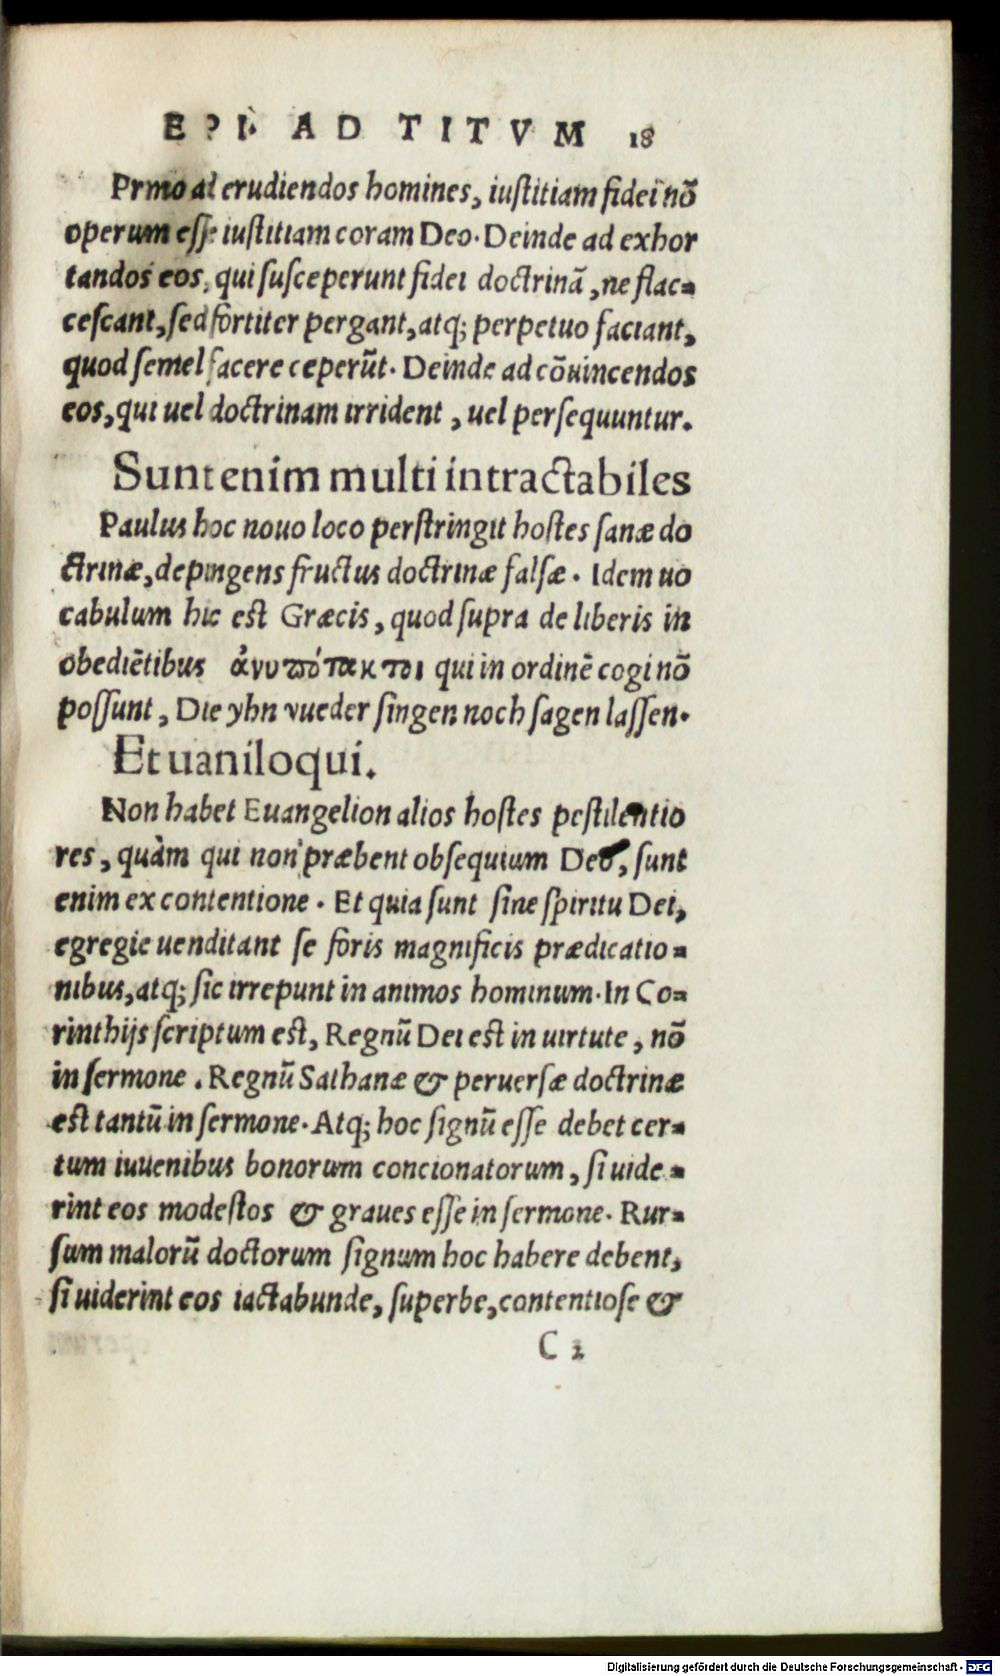 EPI. AD TITVM 18
Prmo ad erudiendos homines, iustitiam fidei nō
operum esse iustitiam coram Deo. Deinde ad exhor
tandos eos, qui susceperunt fidei doctrinā, ne flac-
cescant, sed fortiter pergant, atq; perpetuo faciant,
quod semel facere ceperūt. Deinde ad cōuincendos
eos, qui uel doctrinam irrident, uel persequuntur.
Sunt enim multi intractabiles
Paulus hoc nouo loco perstringit hostes sanæ do
ctrinæ, depingens fructus doctrinæ falsæ. Idem uo
cabulum hic est Græcis, quod supra de liberis in
obediētibus ἀνυπότακτοι qui in ordinē cogi nō
possunt, Die yhn vueder singen noch sagen lassen.
Et uaniloqui.
Non habet Euangelion alios hostes pestilentio
res, quàm qui non præbent obsequium Deo, sunt
enim ex contentione. Et quia sunt sine spiritu Dei,
egregie uenditant se foris magnificis prædicatio-
nibus, atq; sic irrepunt in animos hominum. In Co-
rinthijs scriptum est, Regnū Dei est in uirtute, nō
in sermone. Regnū Sathanæ & peruersæ doctrinæ
est tantū in sermone. Atq; hoc signū esse debet cer-
tum iuuenibus bonorum concionatorum, si uide-
rint eos modestos & graues esse in sermone. Rur-
sum malorū doctorum signum hoc habere debent,
si uiderint eos iactabunde, superbe, contentiose &
C 2
Digitalisierung gefördert durch die Deutsche Forschungsgemeinschaft - DFG